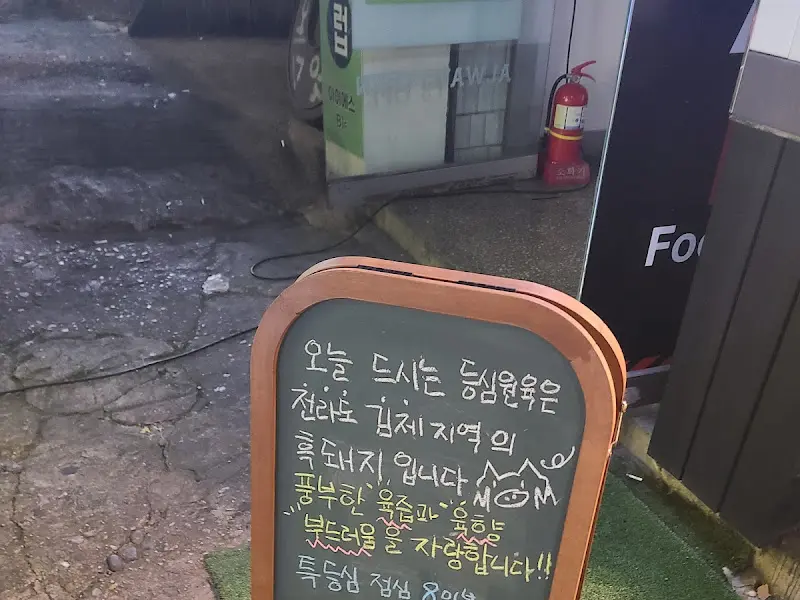 럽
아이에스
ALWAYS
소화기
Foo
오늘 드시는 등심원육은
전라도 김제지역의
흑돼지입니다
풍부한 육즙과 육향
부드러움을 자랑합니다!!
특등심 점심 8인분